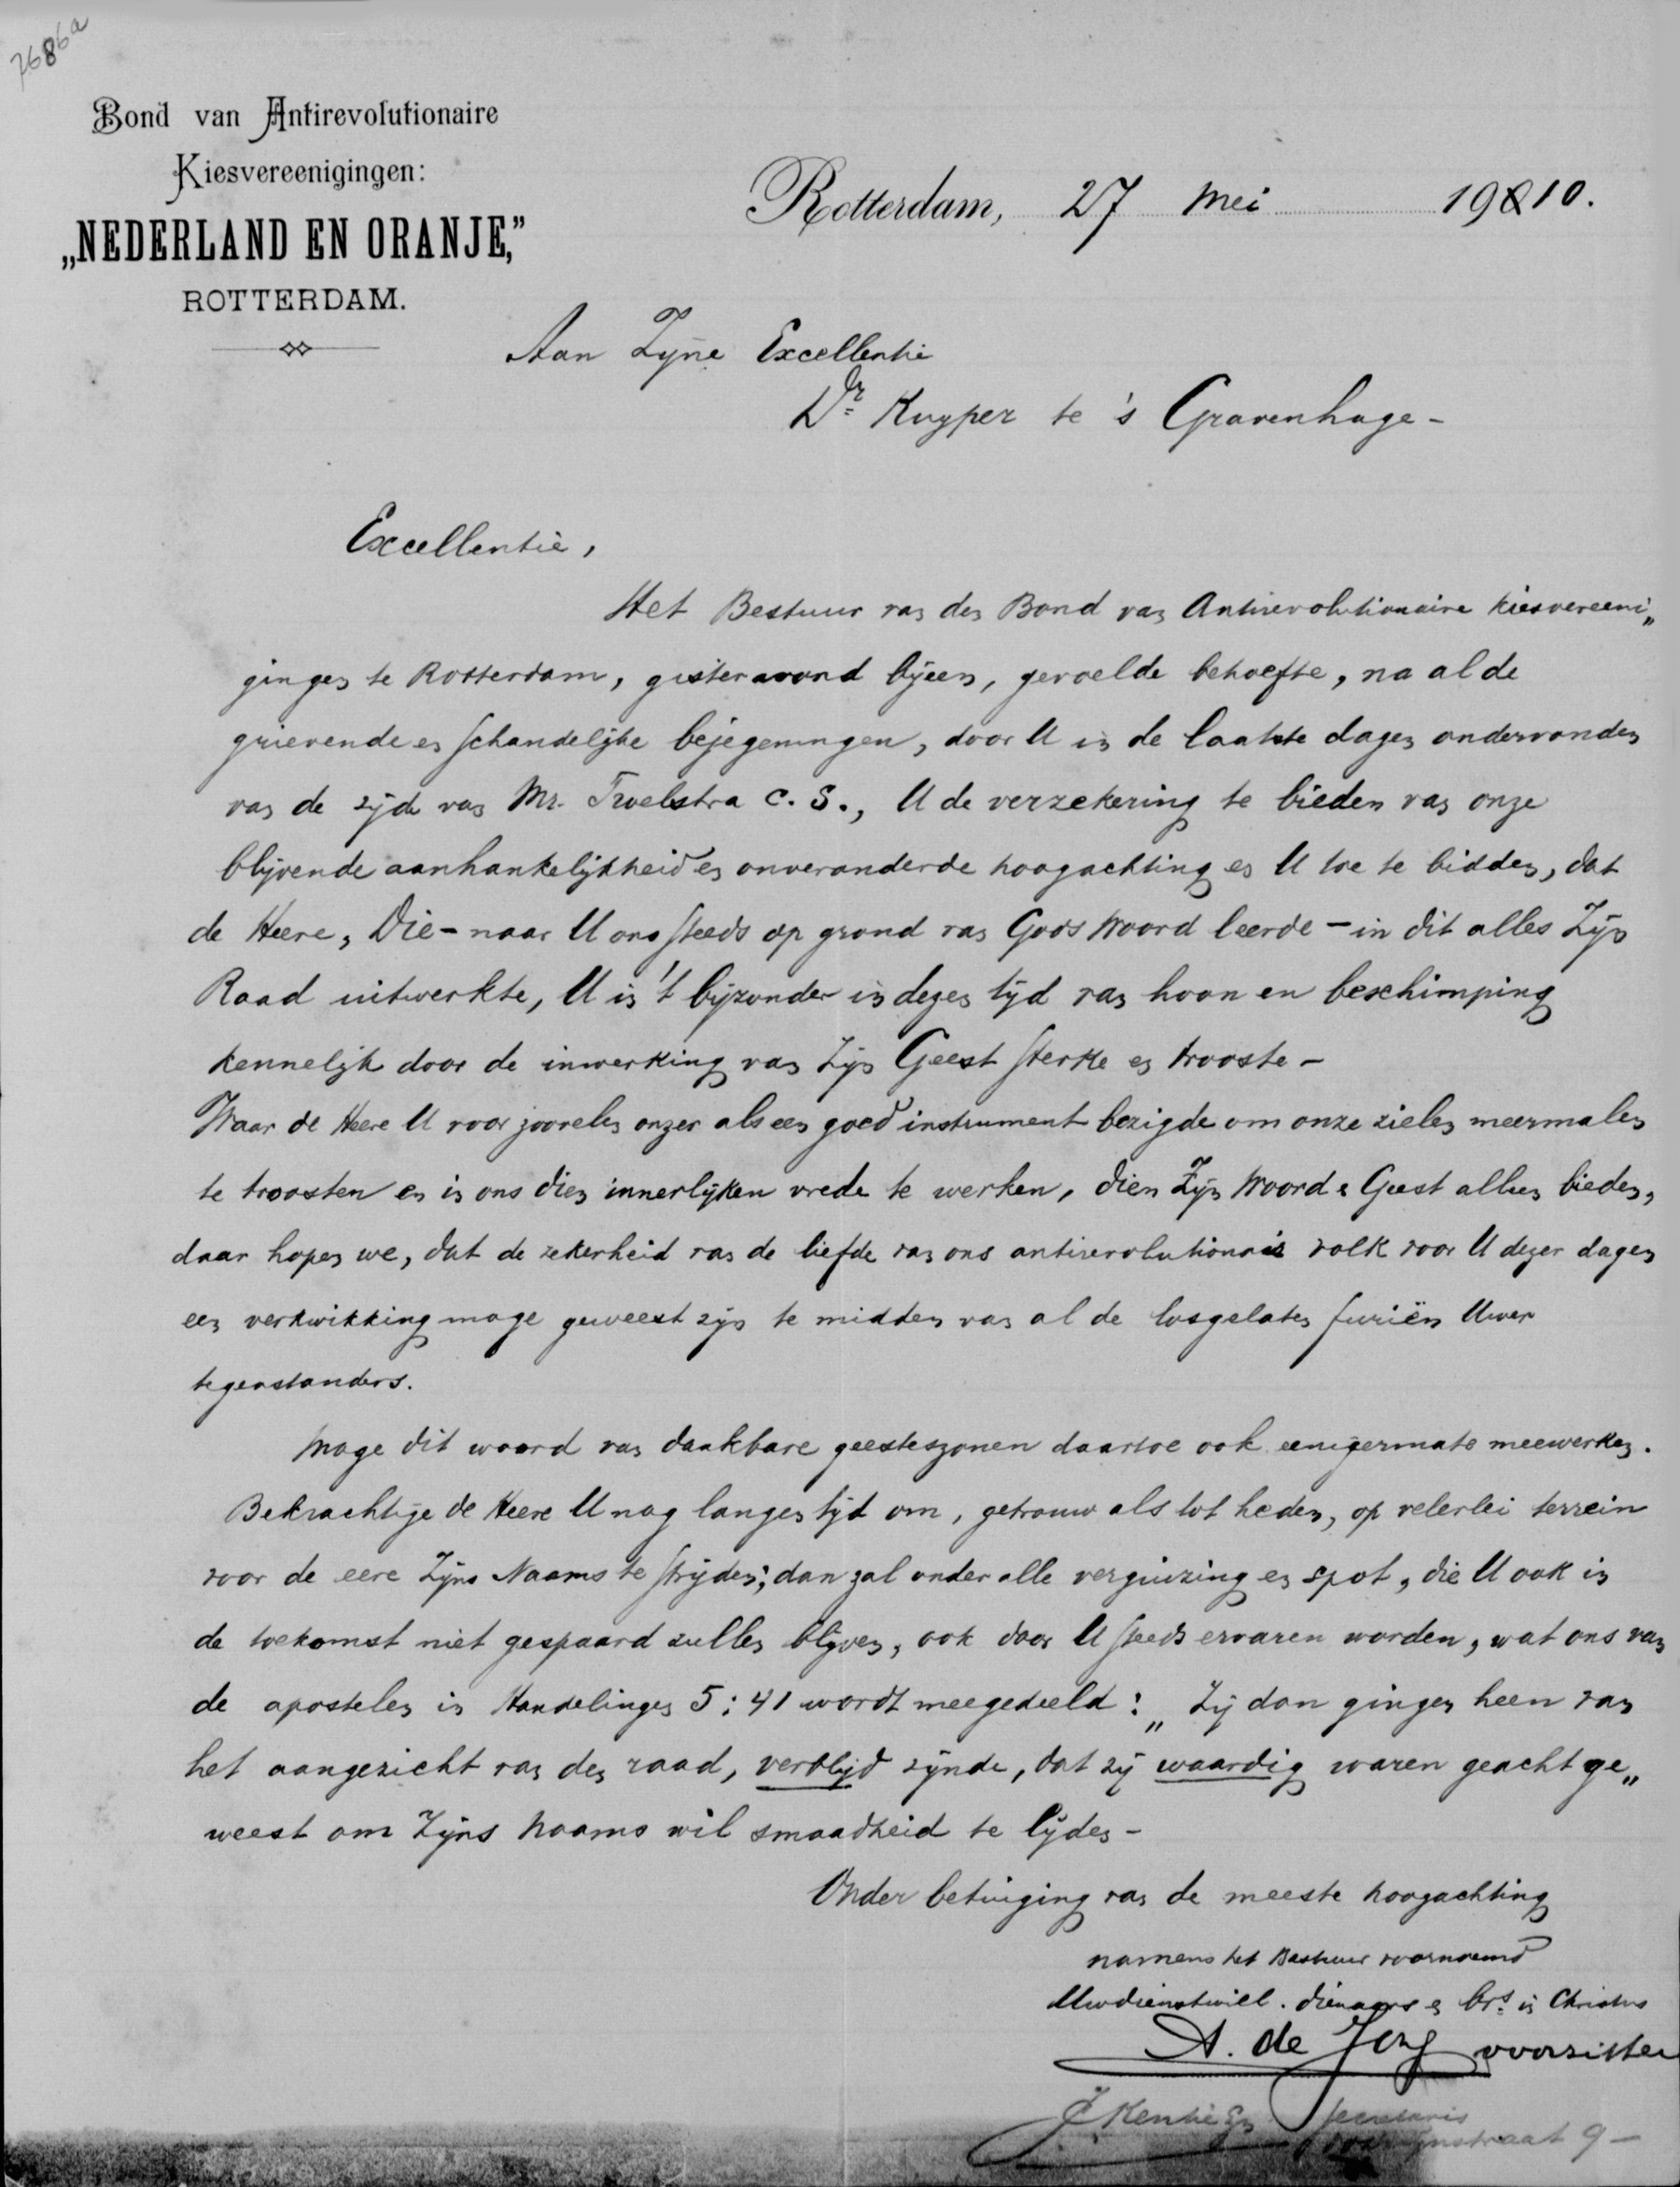 7686a
Bond van Antirevolutionaire
Kiesvereenigingen:
„NEDERLAND EN ORANJE,”
ROTTERDAM.
Rotterdam, 27 Mei 19010.
Aan Zijne Excellentie
Dr Kuyper te 's Gravenhage -
Excellentie,
Het Bestuur van den Bond van Antirevolutionaire kiesvereeni„
gingen te Rotterdam, gisteravond bijeen, gevoelde behoefte, na al de
grievende en schandelijke bejegeningen, door U in de laatste dagen ondervonden
van de zijde van Mr. Troelstra c.s., U de verzekering te bieden van onze
blijvende aanhankelijkheid en onveranderde hoogachting en U toe te bidden, dat
de Heere, Die - naar U ons steeds op grond van Gods Woord leerde - in dit alles Zijn
Raad uitwerkte, U in 't bijzonder in dezen tijd van hoon en beschimping
kennelijk door de inwerking van Zijn Geest sterke en trooste -
Waar de Heere U voor zoovelen onzer als een goed instrument bezigde om onze zielen meermalen
te troosten en in ons dien innerlijken vrede te werken, dien Zijn Woord & Geest alleen bieden,
daar hopen we, dat de zekerheid van de liefde van ons antirevolutionair volk voor U dezer dagen
een verkwikking moge geweest zijn te midden van al de losgelaten furiën Uwer
tegenstanders.
Moge dit woord van dankbare geesteszonen daartoe ook eenigermate meewerken.
Bekrachtige de Heere U nog langen tijd om, getrouw als tot heden, op velerlei terrein
voor de eere Zijns Naams te strijden; dan zal onder alle verguizing en spot, die U ook in
de toekomst niet gespaard zullen blijven, ook door U steeds ervaren worden, wat ons van
de apostelen in Handelingen 5:41 wordt meegedeeld: „Zij dan gingen heen van
het aangezicht van den raad, verblijd zijnde, dat zij waardig waren geacht ge„
weest om Zijns Naams wil smaadheid te lijden -
Onder betuiging van de meeste hoogachting
namens het Bestuur voornoemd
Uw dienstwill. dienaars & brs in Christus
A. de Jong voorzitter
secretaris
9 -